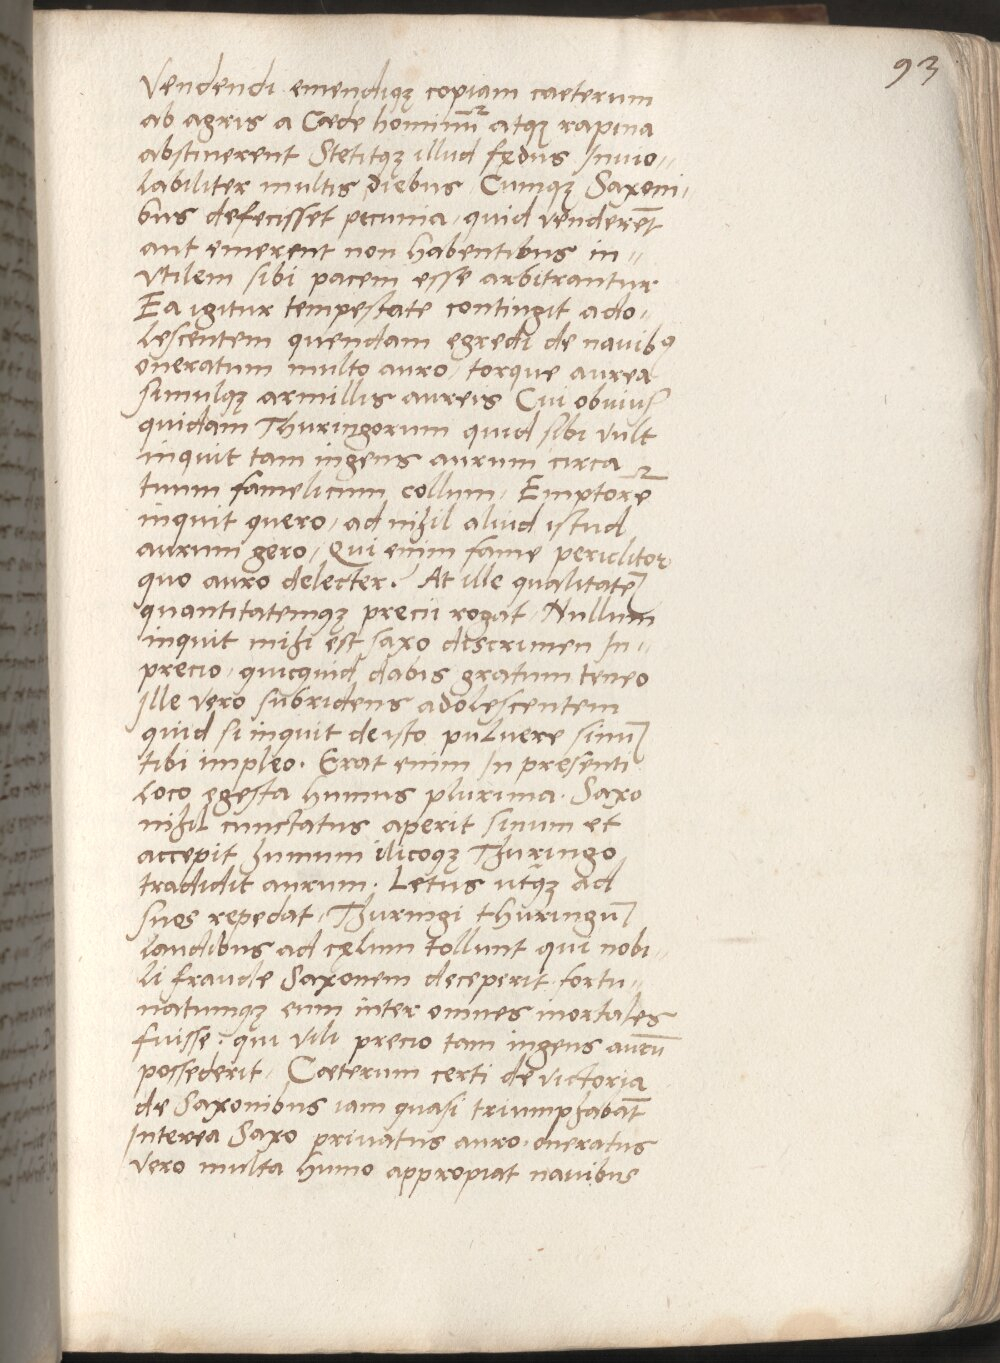 93
Vendendi emendiqꝫ copiam caeterum
ab agris a Cæde hominū atqꝫ rapina
abstinerent Stetitqꝫ illud fędus Inuio-
labiliter multis diebus, Cumqꝫ Saxoni-
bus defecisset pecunia, quid venderēt
aut emerent non habentibus in-
vtilem sibi pacem esse arbitrantur
Ea igitur tempestate contingit ado-
lescentem quendam egredi de nauibꝰ
oneratum multo auro, torque aurea
simulqꝫ armillis aureis Cui obuius
quidam Thuringorum quid sibi vult
inquit tam ingens aurum circa
tuum famelicum collum, Emptorē
inquit quero, ad nihil aliud istud
aurum gero, Qui enim fame periclitor
quo auro delecter? At ille qualitatē
quantitatemqꝫ precii rogat, Nullum
inquit mihi est saxo descrimen In-
precio, quicquid dabis gratum teneo
ille vero subridens adolescentem
quid si inquit de isto puluere sinū
tibi impleo. Erat enim In presenti
loco egesta humus plurima. Saxo
nihil cunctatus aperit sinum et
accepit humum ilicoqꝫ Thuringo
tradidit aurum. Letus vterqꝫ ad
suos repedat, Thuringi thuringū
laudibus ad cęlum tollunt qui nobi-
li fraude Saxonem deceperit fortu-
natumqꝫ eum inter omnes mortales
fuisse: qui vili precio tam ingens aurū
possederit, Cæterum certi de victoria
de Saxonibus iam quasi triumphabāt
Interea Saxo priuatus auro, oneratus
vero multa humo appropiat nauibus